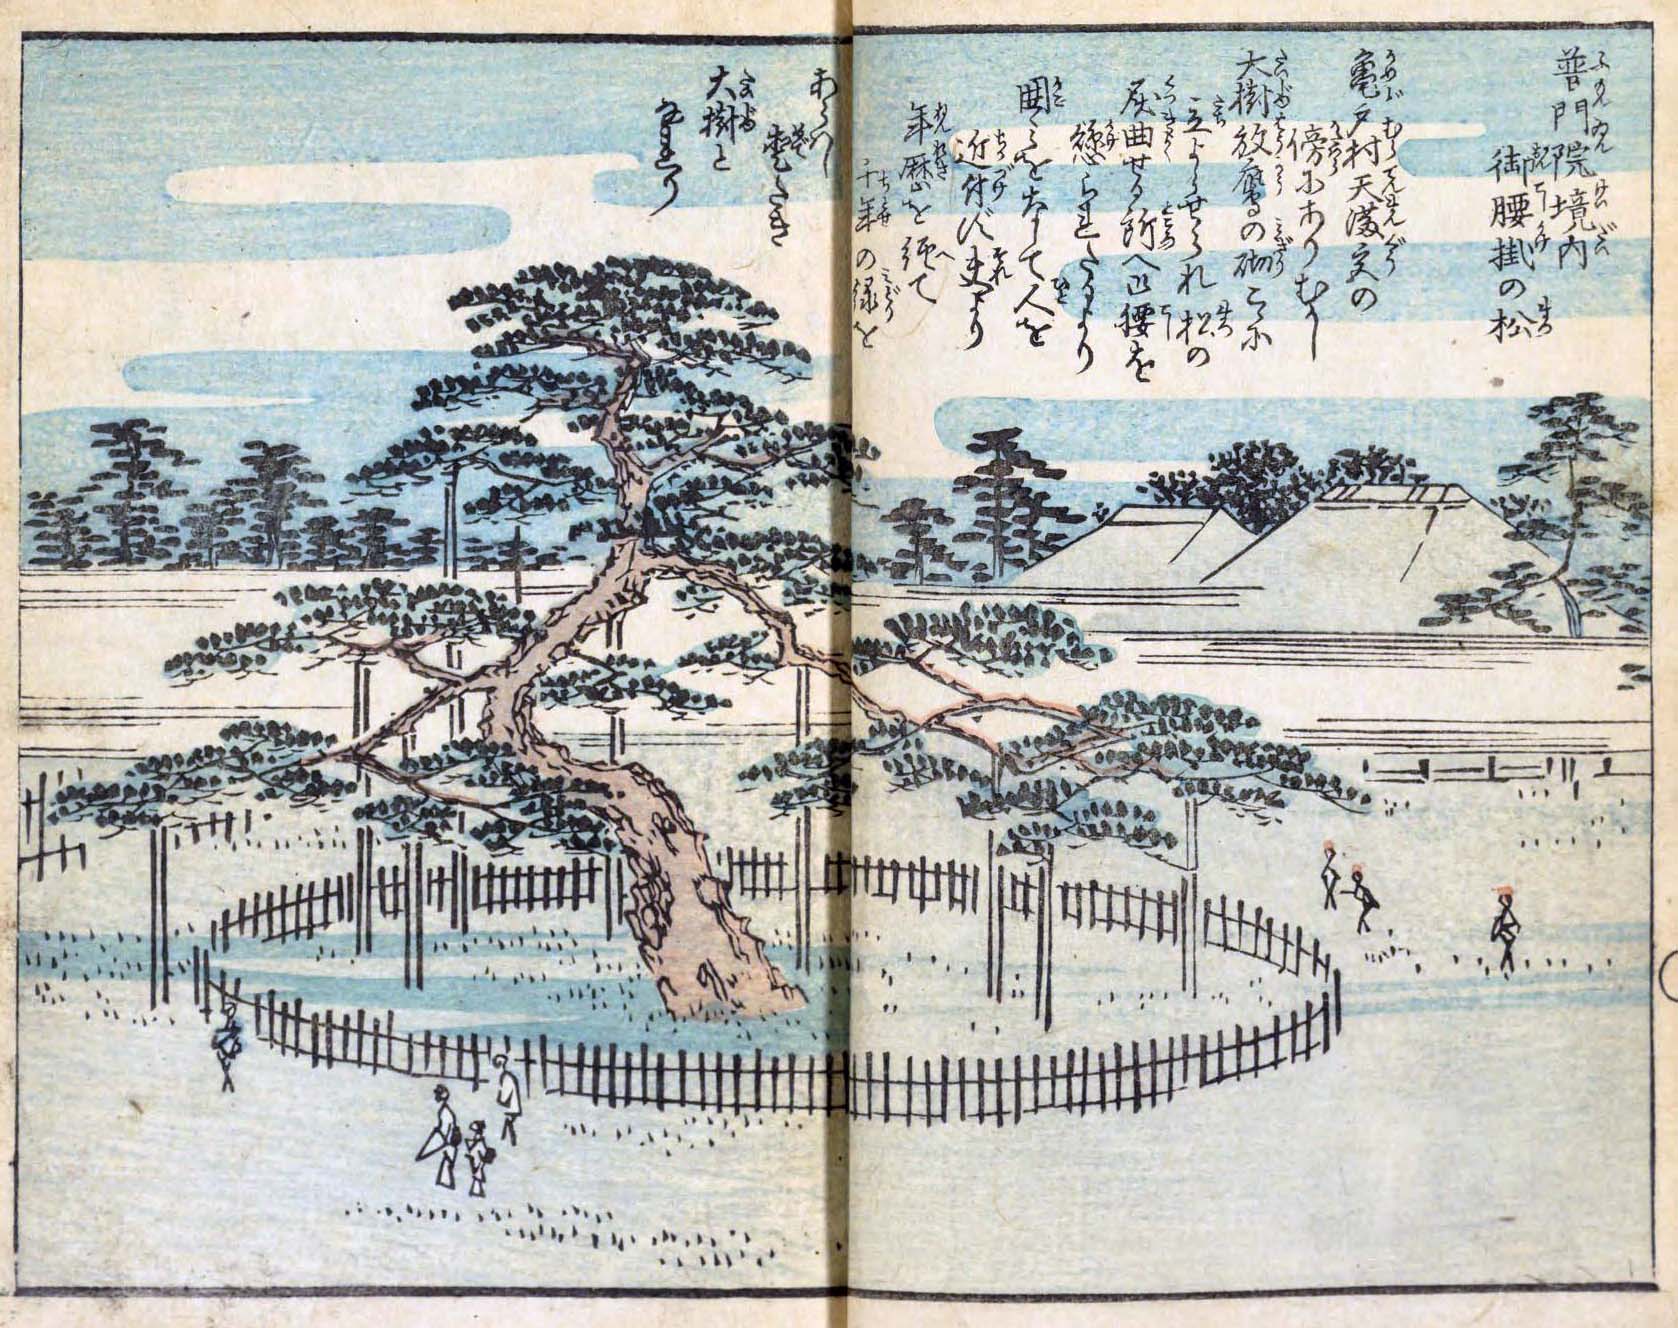 普門院境内
御腰掛の松
亀戸村天満宮の
傍にありむかし
大樹放鷹の砌こゝに
立よらせられ松の
屈曲せる所へ御腰を
懸られたるより
囲ミをなして人を
近付ず夫より
年暦を経て
千年の緑を
あらハし
大樹と
なれり